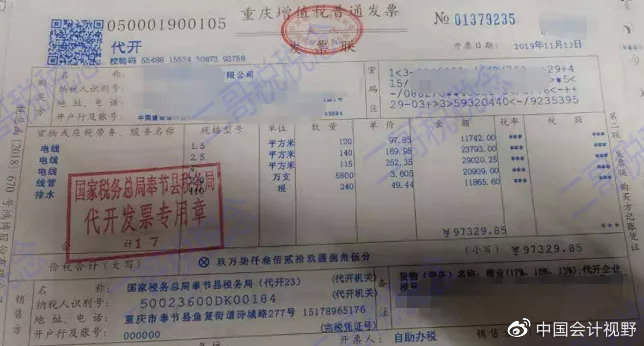 050001900105
重庆增值税普通发票
№ 01379235
代开
发票联
校验码 55486 15524 30873 95758
开票日期: 2019年11月13日
购买方
名 称:
限公司
纳税人识别号:
地 址、电 话:
开户行及账号:
密码区
29-03+>3>59320440</-9235395
货物或应税劳务、服务名称 规格型号 单位 数量 单价 金额 税率 税额
电线 1.5 平方米 120 97.85 11742.00 ***
电线 2.5 平方米 140 169.95 23793.00 ***
电线 平方米 115 252.35 29020.25 ***
线管 万支 5800 3.605 20909.00 ***
排水 根 240 49.44 11865.60 ***
国家税务总局奉节县税务局
代开发票专用章
17
合 计
¥97329.85
***
价税合计(大写)
⊗ 玖万柒仟叁佰贰拾玖圆捌角伍分
(小写) ¥97329.85
销售方
名 称: 国家税务总局奉节县税务局(代开23) (代开机关)
纳税人识别号: 50023600DK00184 (代开机关)
地 址、电 话: 重庆市奉节县鱼复街道诗城路277号 15178965176
开户行及账号: 000000 (完税凭证号)
备注
代开企业
税号
开票人: 自助办税
第二联:发票联 购买方记账凭证
二哥税税念
中国会计视野